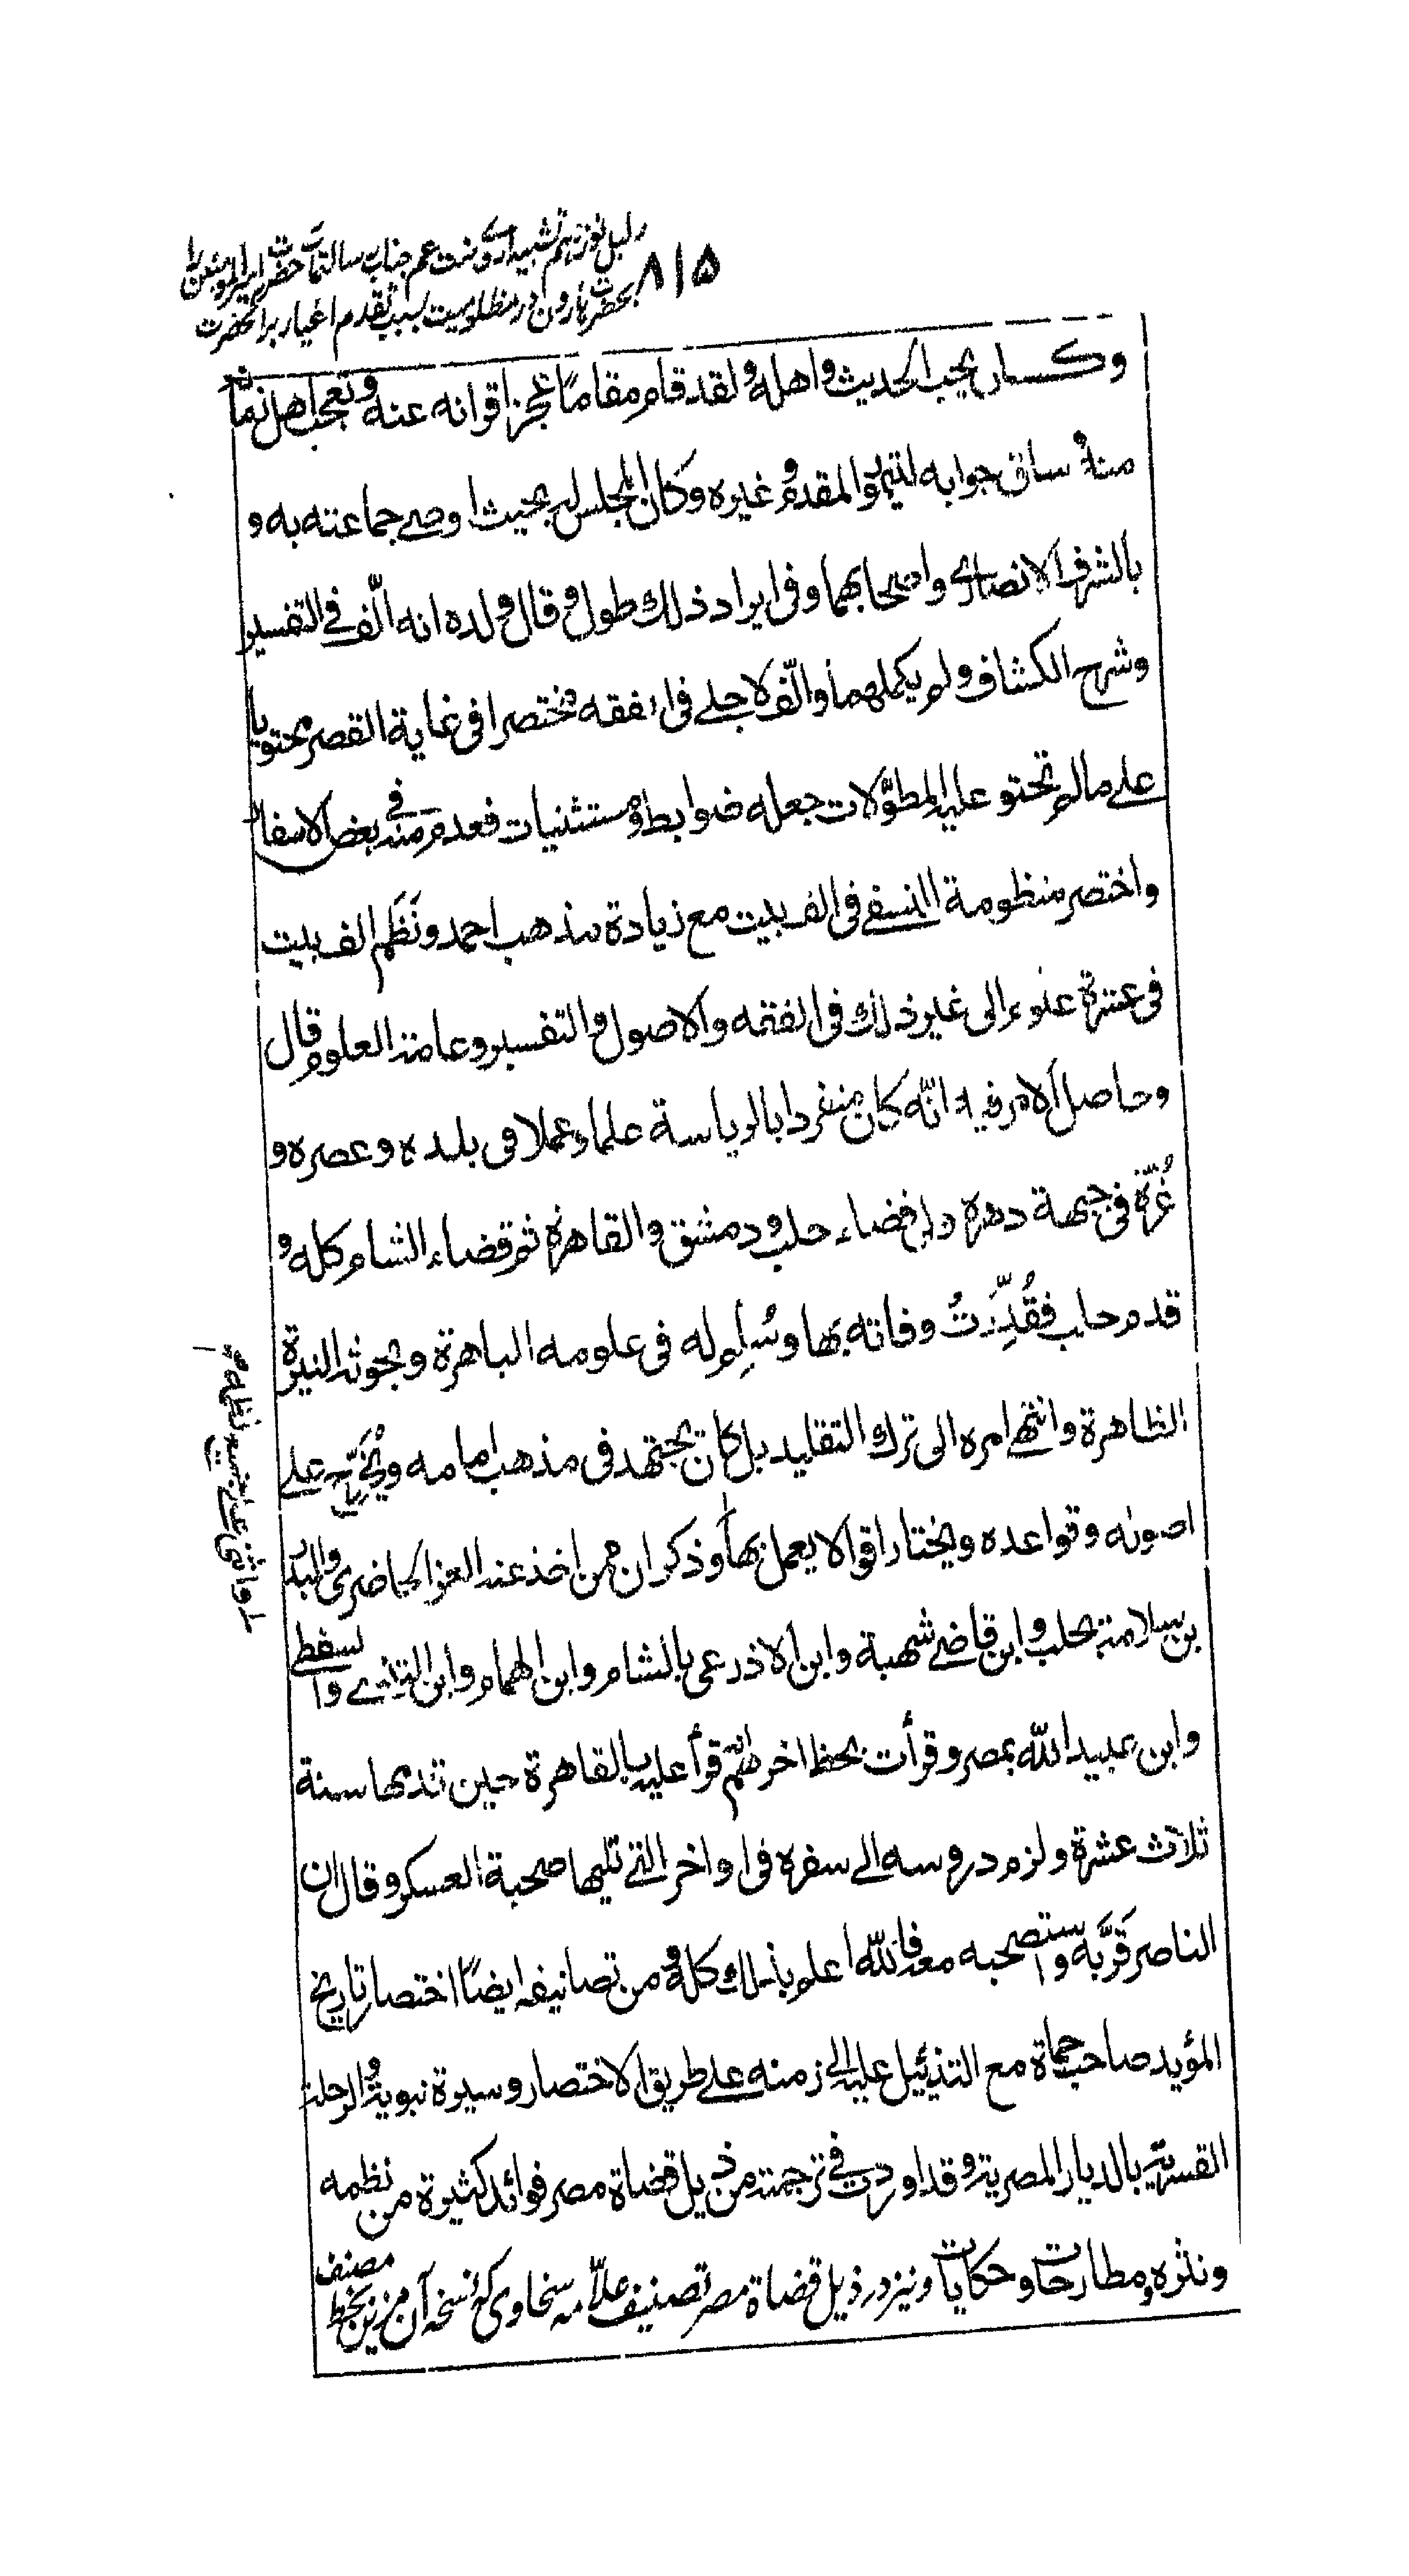 دليل نوزدهم تشبيه دادن بنت عم جناب رسالتمآب حضرت امير المومنين را
بحضرت هارون در مظلوميت بسبب تقدم اغيار بر آنحضرت
۸۱۵
وكسار يحب الحديث واهله ولقد قام مقامًا عجز اقرانه عنه وتعجب اهل زمانه
منه وساق جوابه لتيمور المقدم وغيره وكان المجلس له بحيث اوصى جماعته به و
بالشرف الانصاري واصحابهما وفى ايراد ذلك طول وقال ولده انه الّف فى التفسير
وشرح الكشاف ولم يكملهما والّف لاجلى فى الفقه مختصرا فى غاية القصر محتويا
على مالم تحتو عليه المطوّلات جعله ضوابط ومستثنيات فعدم منه فى بعض الاسفار
واختصر منظومة النسفى فى الف بيت مع زيادة مذهب احمد ونَظَم الف بيت
فى عشرة علوم الى غير ذلك فى الفقه والاصول والتفسير وعامة العلوم قال
وحاصل الامر فيه انّه كان منفردا بالرياسة علما وعملا فى بلده وعصره و
غُرّة فى جبهة دهره ولى قضاء حلب ودمشق والقاهرة ثم قضاء الشام كله و
قدم حلب فقُدِّرَتُ وفاته بها وسُلِم له فى علومه الباهرة وبحوثه النيرة
الظاهرة وانتهى امره الى ترك التقليد بل كان يجتهد فى مذهب امامه ويُخَرِّج على
اصوله وقواعده ويختار اقوالا يعمل بها وذكر ان ممن اخذ عنه العز الحاضرى والبدر
بن سلامة بحلب وابن قاضى شهبة وابن الاذرعى بالشام وابن الهمام وابن التنسى والسفطى
وابن عبيد الله بمصر وقرأت بخط اخرهم انه قرأ عليه بالقاهرة حين قدمها سنة
ثلاث عشرة ولزم دروسه الى سفره فى اواخر التى تليها صحبة العسكر وقال ان
الناصر قَرَّبَه واستصحبه معه فالله اعلم بذلك كله ومن تصانيفه ايضًا اختصار تاريخ
المؤيد صاحب حماة مع التذئيل عليه الى زمنه على طريق الاختصار وسيرة نبوية والرحلة
القسرية بالديار المصرية وقد اوردت فى ترجمته من ذيل قضاة مصر فوائد كثيرة من نظمه
ونثره ومطارحات وحكايات ونيز در ذيل قضاة مصر تصنيف علّامه سخاوى كه نسخه آن مزين بخط مصنف